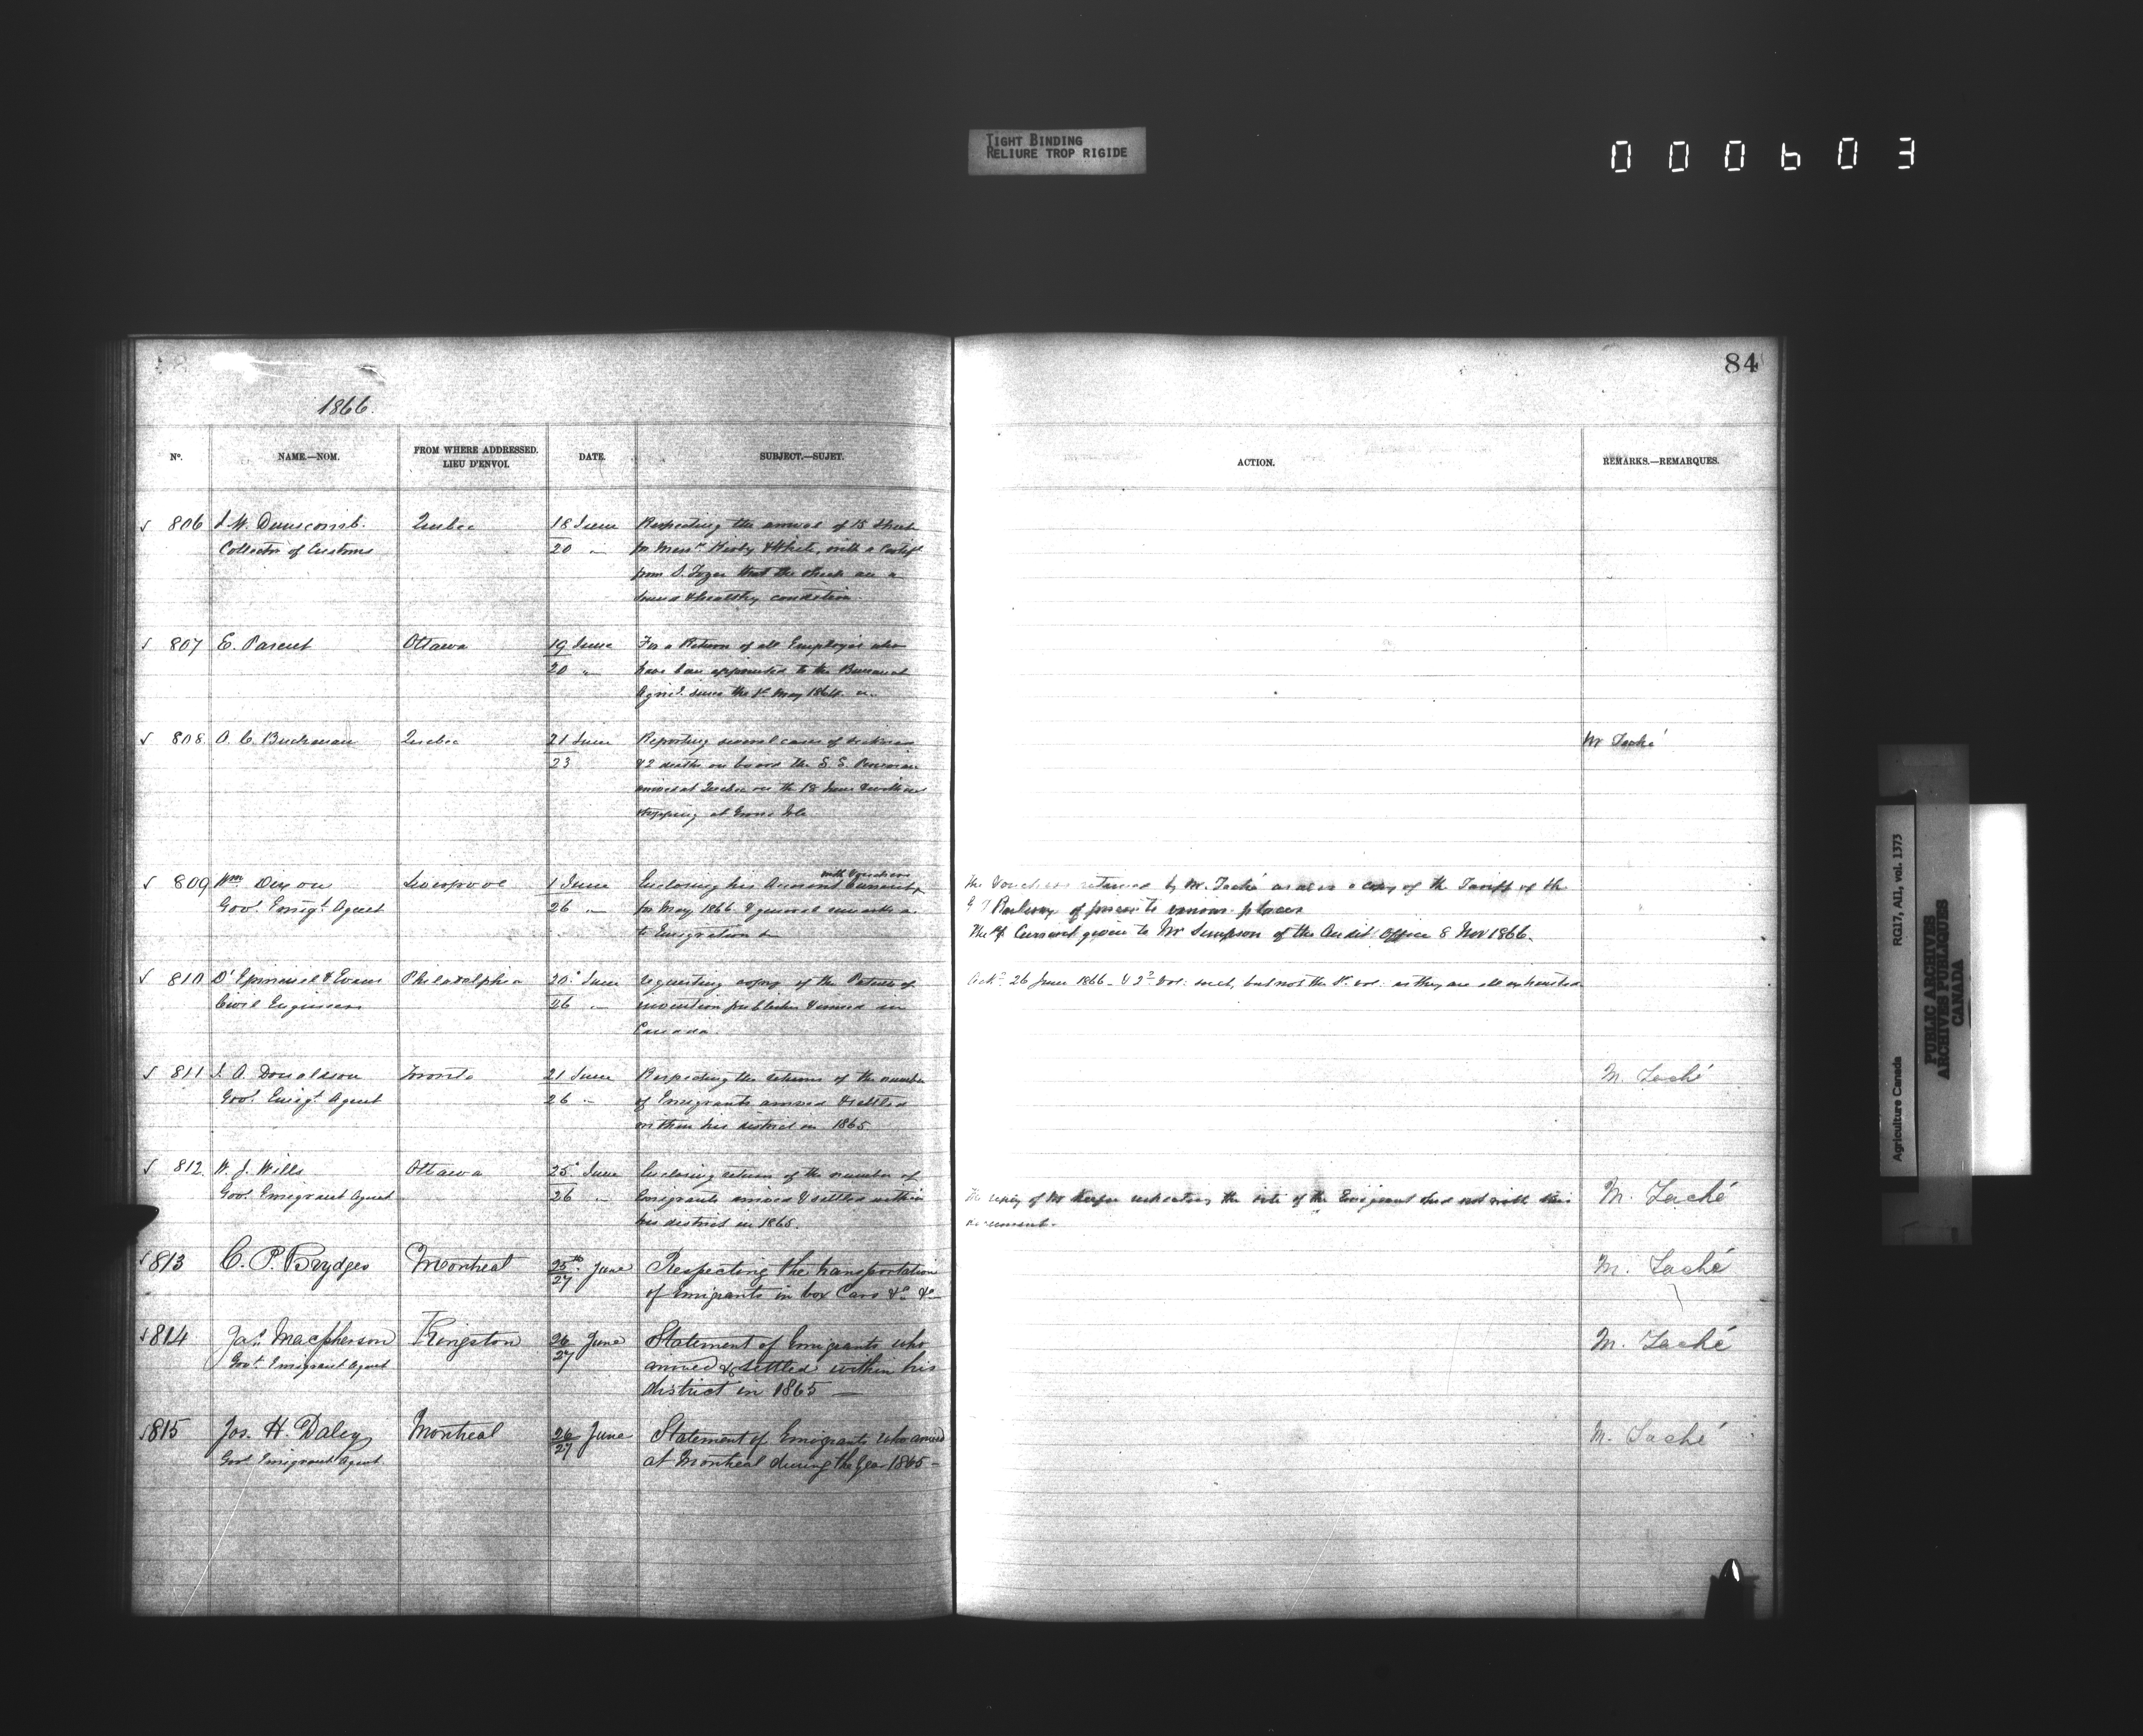 TIGHT BINDING
RELIURE TROP RIGIDE
000603
84
1866.
Nº.
NAME.—NOM.
FROM WHERE ADDRESSED.
LIEU D'ENVOI.
DATE.
SUBJECT.—SUJET.
ACTION.
REMARKS.—REMARQUES.
806 J. W. Dunscomb. Quebec 18 June Respecting the arrival of 15 Sheep
Collector of Customs 20 " for Messrs Kirby & White, with a Certif
from S. Tozer that the sheep are in
sound & healthy condition.
807 E. Parent Ottawa 19 June For a Return of all Employés who
20 " have been appointed to the Bureau of
Agric. since the 1st May 1864
808 A. C. Buchanan Quebec 21 June Reporting several cases of sickness Mr Taché
23 & 2 deaths on board the S. S. Peruvian
arrived at Quebec on the 18 June & without
stopping at Grosse Isle
809 Wm Dixon Liverpool 1 June Enclosing his Account Current with Vouchers The Vouchers returned by Mr. Taché as also a copy of the Tariff of the
Govt. Emigt. Agent 26 " for May 1866 & general remarks as G T Railway of prices to various places
to Emigration &c The a/c Current given to Mr Simpson of the Audit Office 8 Nov 1866.
810 D'Epineuil & Evans Philadelphia 20 June requesting copy of the Patents of Ackd 26 June 1866 - & 2d vol. sent, but not the 1st vol. as they are all exhausted
Civil Engineers 26 " invention published & issued in
Canada.
811 J. A. Donaldson Toronto 21 June Respecting the returns of the number M. Taché
Govt. Emigt. Agent 26 " of Emigrants arrived & settled
within his district in 1865
812. W. J. Wills Ottawa 25 June Enclosing return of the number of
Govt. Emigrant Agent 26 " Emigrants arrived & settled within The reply of Mr Keefer indicating the site of the Emigrant shed not with this M. Taché
his district in 1865. document.
813 C. P. Brydges Montreal 25th June Respecting the transportation M. Taché
27 of Emigrants in box Cars &c &c
814 Jas. Macpherson Kingston 26 June Statement of Emigrants who M. Taché
Govt. Emigrant Agent 27 arrived & settled within his
district in 1865 —
815 Jos. H. Daley Montreal 26 June Statement of Emigrants who arrived M. Taché
Govt Emigrant Agent 27 at Montreal during the Year 1865 -
Agriculture Canada RG17, AII, vol. 1373
PUBLIC ARCHIVES
ARCHIVES PUBLIQUES
CANADA